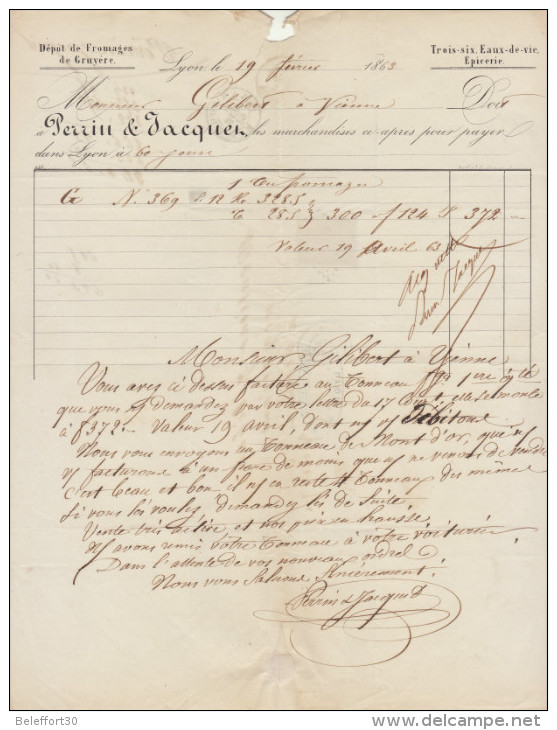 Dépôt de Fromages
de Gruyère.
Trois-six, Eaux-de-vie,
Epicerie.
Lyon, le 19 février 1863
Monsieur Gilibert à Vienne Doit
à Perrin & Jacquet, les marchandises ci-après pour payer
dans Lyon à 60 jours
1 fromages
G N. 369 12 Ko 328.5
T 28.5 } 300 f 124 % 372
Valeur 19 avril 63
Perrin & Jacquet
Monsieur Gilibert à Vienne
Vous avez ci dessus facture au Tonneau fge 1ere qlté
que vous ns demandez par votre lettre du 17 Ct, elle se monte
à f 372.- Valeur 19 avril, dont ns vs Débitons
Nous vous envoyons un Tonneau de Mont d'or, que ns
vs facturons à un franc de moins que ns ne venons de vendre
c'est beau et bon il ns en reste Tonneau des mêmes
Si vous les voulez, demandez les de suite
Vente très active et nos prix en hausse
Ns avons remis votre Tonneau à votre voiturier
Dans l'attente de vos nouveaux ordres
Nous vous saluons sincèrement.
Perrin & Jacquet
Beleffort30
www.delcampe.net